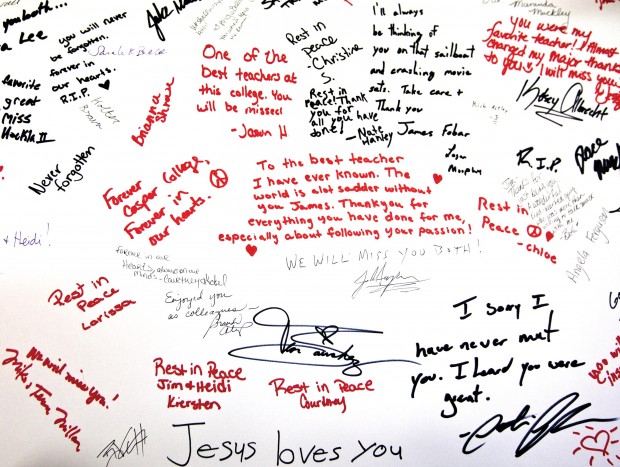 you both...
a Lee
favorite
great
Miss
Hockla II
you will never
be forgotten.
forever in
our hearts.
R.I.P.
One of the
best teachers at
this college. You
will be missed!
- Jason H
Rest in
peace
- Christine
S.
Rest in
peace! Thank
you for
all you have
done!
- Nate
Hanley
I'll always
be thinking of
you on that sailboat
and crashing movie
sets. Take care +
Thank you
James Fobar
Logan
Miranda
Mackley
You were my
favorite teacher! I almost
changed my major thanks
to you I will miss you
Kasey Albrecht
R.I.P.
Peace
Brianna
Never
forgotten
Forever
Casper College.
Forever in
our hearts.
To the best teacher
I have ever known. The
world is alot sadder without
you James. Thankyou for
everything you have done for me,
especially about following your passion!
WE WILL MISS YOU BOTH!
Rest in
Peace
- Chloe
Angela Ferguson
& Heidi!
Forever in our
Hearts, always in our
minds - Courtney
Enjoyed you
as colleagues -
Rest in
Peace
Larissa
We will miss you!
Mike, Team Miller
Rest in Peace
Jim & Heidi
Kiersten
Rest in Peace
Courtney
I sorry I
have never met
you. I heard you were
great.
Jesus loves you